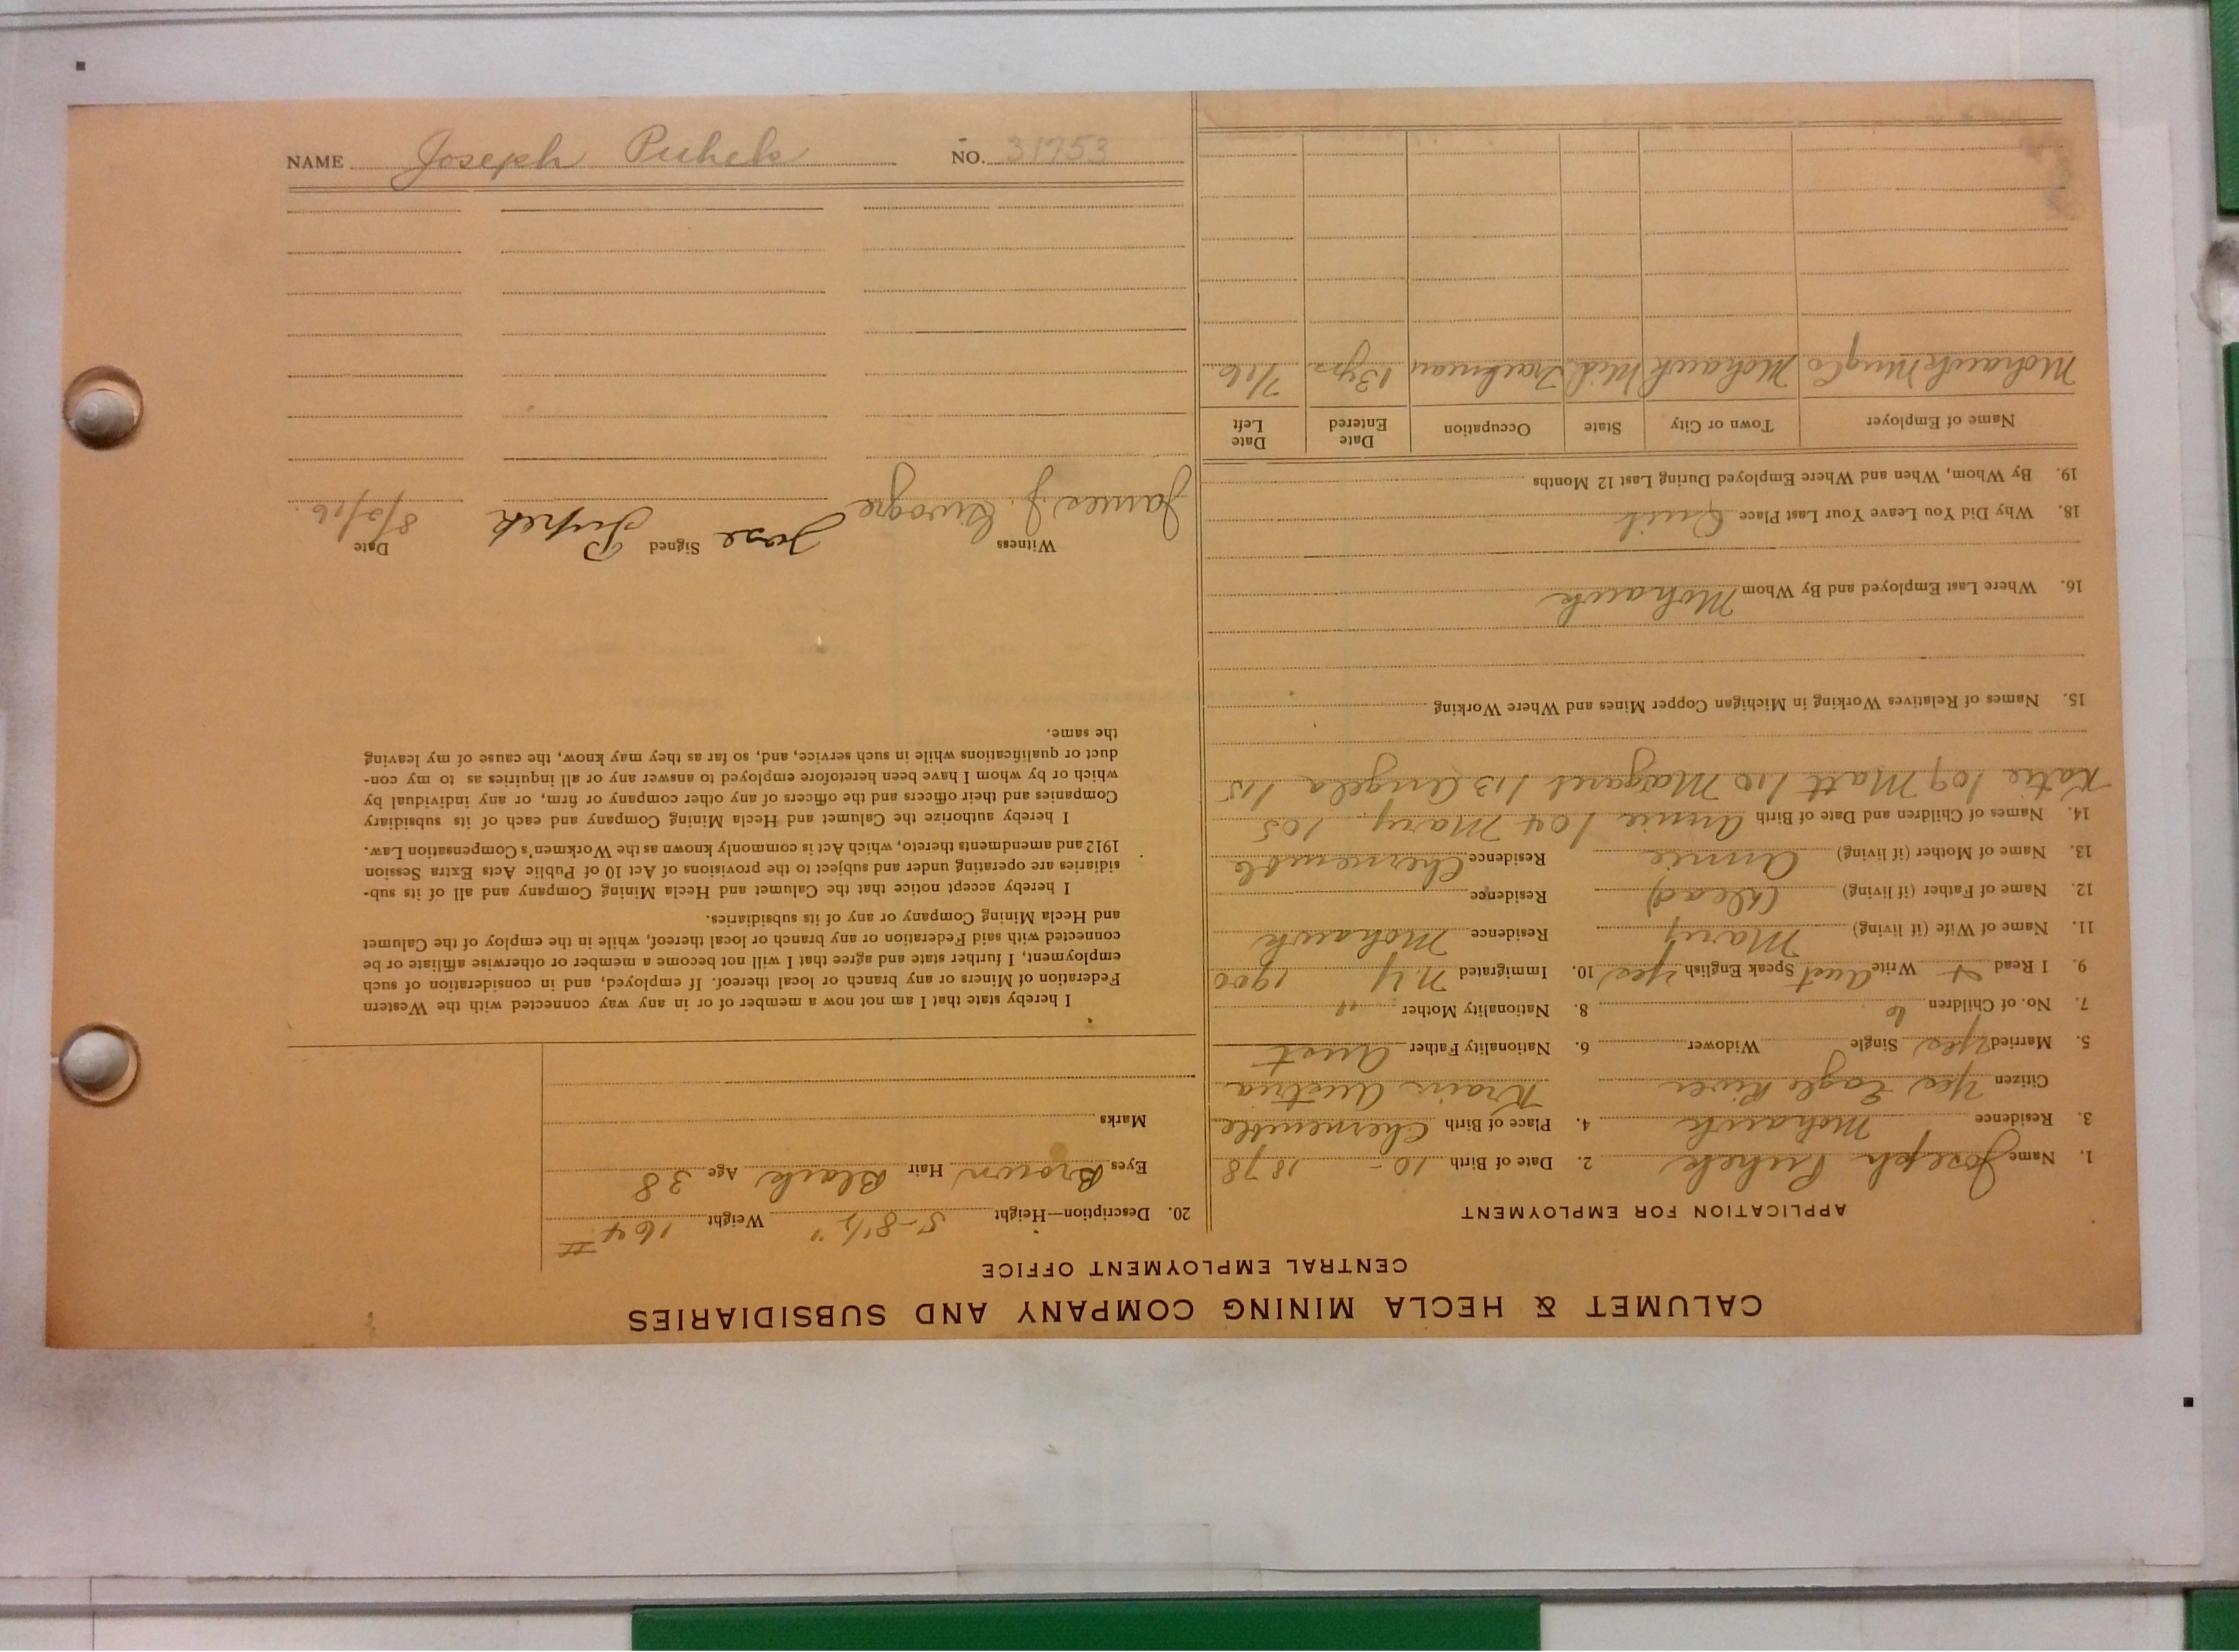 CALUMET & HECLA MINING COMPANY AND SUBSIDIARIES
CENTRAL EMPLOYMENT OFFICE
APPLICATION FOR EMPLOYMENT
1. Name Joseph Puhek 2. Date of Birth 10 - 1878
3. Residence Mohawk 4. Place of Birth Chernemble
Citizen Yes Eagle River Krain Austria
5. Married Yes Single Widower 6. Nationality Father Aust
7. No. of Children 6 8. Nationality Mother "
9. I Read & Write Aust Speak English Yes 10. Immigrated N.Y 1900
11. Name of Wife (if living) Mary Residence Mohawk
12. Name of Father (if living) (dead) Residence
13. Name of Mother (if living) Annie Residence Chernemble
14. Names of Children and Date of Birth Annie 1904 Mary, 105
Katie 109 Matt 110 Margaret 113 Angela 115
15. Names of Relatives Working in Michigan Copper Mines and Where Working
16. Where Last Employed and By Whom Mohawk
18. Why Did You Leave Your Last Place Quit
19. By Whom, When and Where Employed During Last 12 Months
Name of Employer Town or City State Occupation Date Entered Date Left
Mohawk Mng Co Mohawk Mich Trackman 13 yrs 7/16
20. Description—Height 5-8 1/2" Weight 164 #
Eyes Brown Hair Black Age 38
Marks
I hereby state that I am not now a member of or in any way connected with the Western
Federation of Miners or any branch or local thereof. If employed, and in consideration of such
employment, I further state and agree that I will not become a member or otherwise affiliate or be
connected with said Federation or any branch or local thereof, while in the employ of the Calumet
and Hecla Mining Company or any of its subsidiaries.
I hereby accept notice that the Calumet and Hecla Mining Company and all of its sub-
sidiaries are operating under and subject to the provisions of Act 10 of Public Acts Extra Session
1912 and amendments thereto, which Act is commonly known as the Workmen's Compensation Law.
I hereby authorize the Calumet and Hecla Mining Company and each of its subsidiary
Companies and their officers and the officers of any other company or firm, or any individual by
which or by whom I have been heretofore employed to answer any or all inquiries as to my con-
duct or qualifications while in such service, and, so far as they may know, the cause of my leaving
the same.
Witness Signed Date
James J. Joze 8/2/16
NAME Joseph Puhek NO. 31753